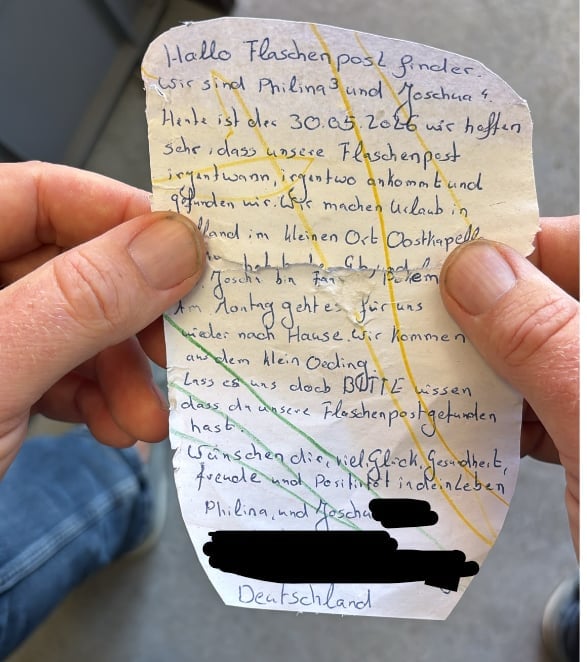 Hallo Flaschenpost finder.
Wir sind Philina 3 und Joschua 4.
Heute ist der 30.05.2026 wir hoffen
sehr, dass unsere Flaschenpost
irgentwann, irgentwo ankommt und
gefunden wir. Wir machen Urlaub in
lland im kleinen Ort Oostkapelle
Joscha bin Fan
Am Montag geht es für uns
wieder nach Hause. Wir kommen
aus dem klein Oeding.
Lass es uns doch BITTE wissen
dass du unsere Flaschenpost gefunden
hast.
Wünschen dir, viel Glück, Gesundheit,
freude und Positivtet in dein Leben
Philina, und Joschu
Deutschland